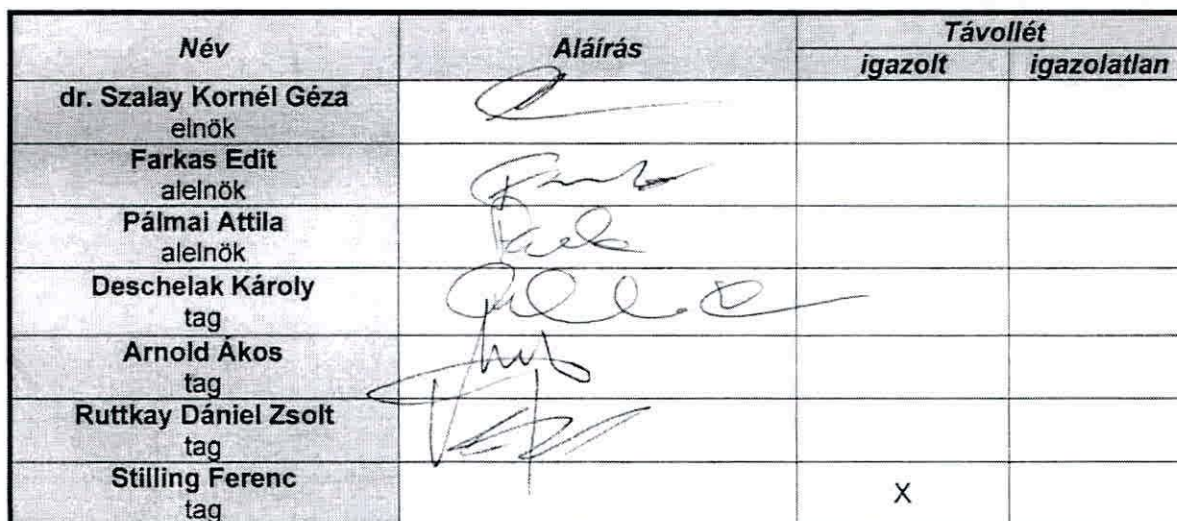 Név Aláírás Távollét
igazolt igazolatlan
dr. Szalay Kornél Géza
elnök
Farkas Edit
alelnök
Pálmai Attila
alelnök
Deschelak Károly
tag
Arnold Ákos
tag
Ruttkay Dániel Zsolt
tag
Stilling Ferenc
tag
X